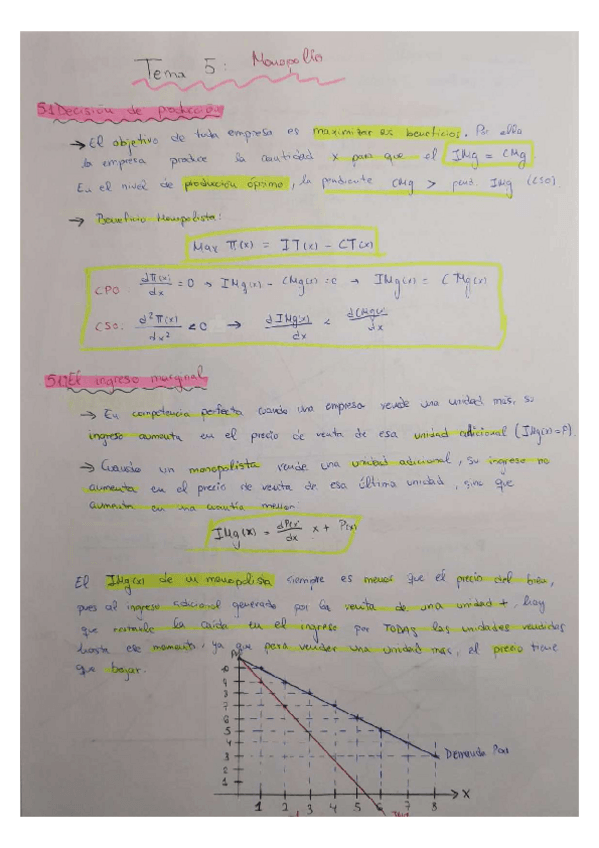 Tema 5: Monopolio
5.1 Decisión de producción
→ El objetivo de toda empresa es maximizar los beneficios. Por ello
la empresa produce la cantidad x para que el IMg = CMg.
En el nivel de producción óptimo, la pendiente CMg > pend. IMg (CSO)
→ Beneficio Monopolista:
Max π(x) = IT(x) - CT(x)
CPO dπ(x)/dx = 0 → IMg(x) - CMg(x) = 0 → IMg(x) = CMg(x)
CSO: d²π(x)/dx² < 0 → dIMg(x)/dx < dCMg(x)/dx
El ingreso marginal
→ En competencia perfecta cuando una empresa vende una unidad más, su
ingreso aumenta en el precio de venta de esa unidad adicional (IMg(x)=P).
→ Cuando un monopolista vende una unidad adicional, su ingreso no
aumenta en el precio de venta de esa última unidad, sino que
aumenta en una cuantía menor:
IMg(x) = dP(x)/dx x + P(x)
El IMg(x) de un monopolista siempre es menor que el precio del bien,
pues al ingreso adicional generado por la venta de una unidad +, hay
que restarle la caída en el ingreso por TODAS las unidades vendidas
hasta ese momento, ya que para vender una unidad más, el precio tiene
que bajar.
10
9
8
7
6
5
4
3
2
1
Demanda P(x)
1 2 3 4 5 6 7 8 x